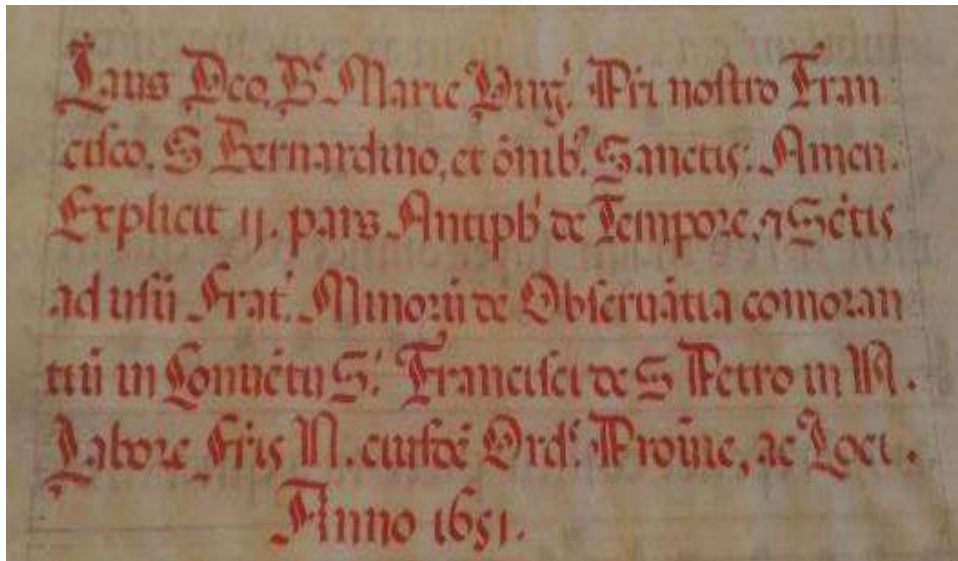 Laus Deo, B.ͭ Marie Virg.ͥ P̃ri nostro Fran
cisco, S Bernardino, et õnib.ꝰ Sanctis: Amen.
Explicit ij. pars Antiph' de Tempore, ⁊ Sc̃tis
ad usũ Frat.' Minorũ de Observãtia comoran
tiũ in Convẽtu S.ͥ Francisci de S Petro in M.
Labore Fr̃is N. eiusdẽ Ord.ͥ Provĩc, ac Loci.
Anno 1651.